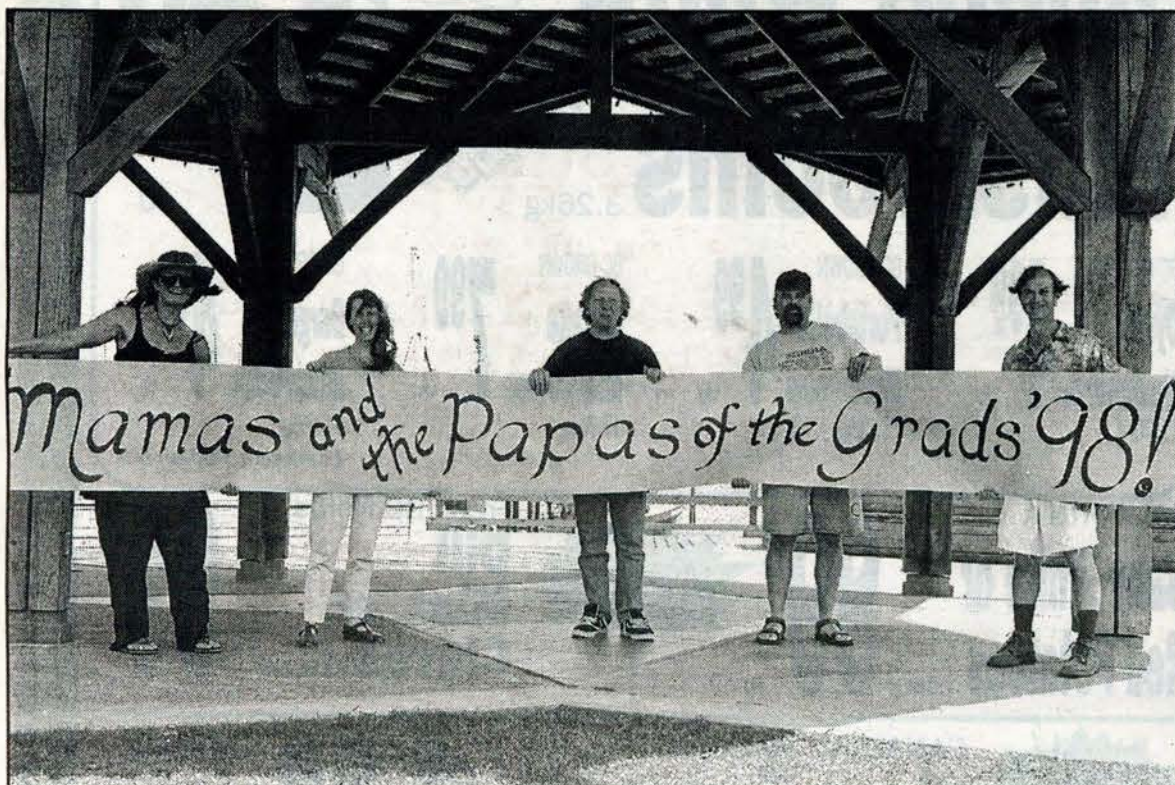 Mamas and the Papas of the Grads '98!
3.26kg